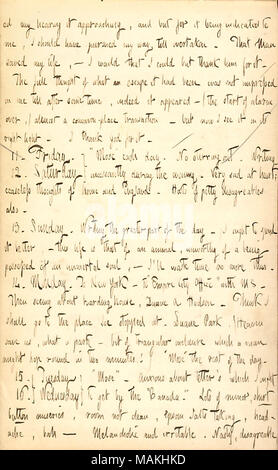 ed my hearing it approaching, and but for it being indicated to
me, I should have pursued my way till overtaken. That Man
saved my life, — I would that I could but thank him for it.
The full thought of what an escape it had been was not impressed
on me till after some time, indeed it appeared (the start of alarm
over,) almost a common-place transaction — but now I see it in its
right light. I thank God for it.
11. Friday. Moses each day. No overcoat. Writing
12. Saturday. incessantly during the evening. Very sad at heart,
ceaseless thoughts of home and England. Hosts of petty disagreeables
also.
13. Sunday. Writing the greater part of the day. I ought to spend
it better, — this life is that of an animal, unworthy of a being
possessed of an immortal soul, — I'll waste time no more thus.
14. Monday. To New York — to Empire city office with MS —
Then seeing about boarding house, Duane & Hudson. Think I
should go to the place he stopped at. Duane Park. (Heaven
save us, what a park — but a triangular inclosure which a man
might hop round in two minutes.) Moses the rest of the day.
15. Tuesday. Moses — anxious about letters which I ought
16. Wednesday to get by the "Canada." Lots of minor shirt
button miseries, room not clean, spoon salts taking, head-
ache, both — Melancholic and irritable. Nasty, disagreeable
alamy
Image ID: MAKKHD
www.alamy.com